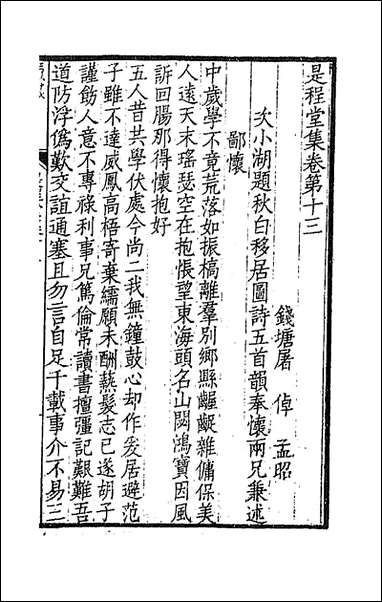 是程堂集卷第十三
錢塘屠 倬 孟昭
次小湖題秋白移居圖詩五首韻奉懷兩兄兼述
鄙懷
中歲學不竟荒落如振槁離羣別鄉縣齷齪雜傭保美
人遠天末瑤瑟空在抱悵望東海頭名山閟鴻寶因風
訴回腸那得懷抱好
五人昔共學伏處今尚二我無鐘鼓心却作爰居避范
子雖不達威鳳高梧寄棄繻願未酬爇髮志已遂胡子
謹飭人意不專祿利事兄篤倫常讀書擅彊記艱難吾
道防浮僞歎交誼通塞且勿言自足千載事介不易三